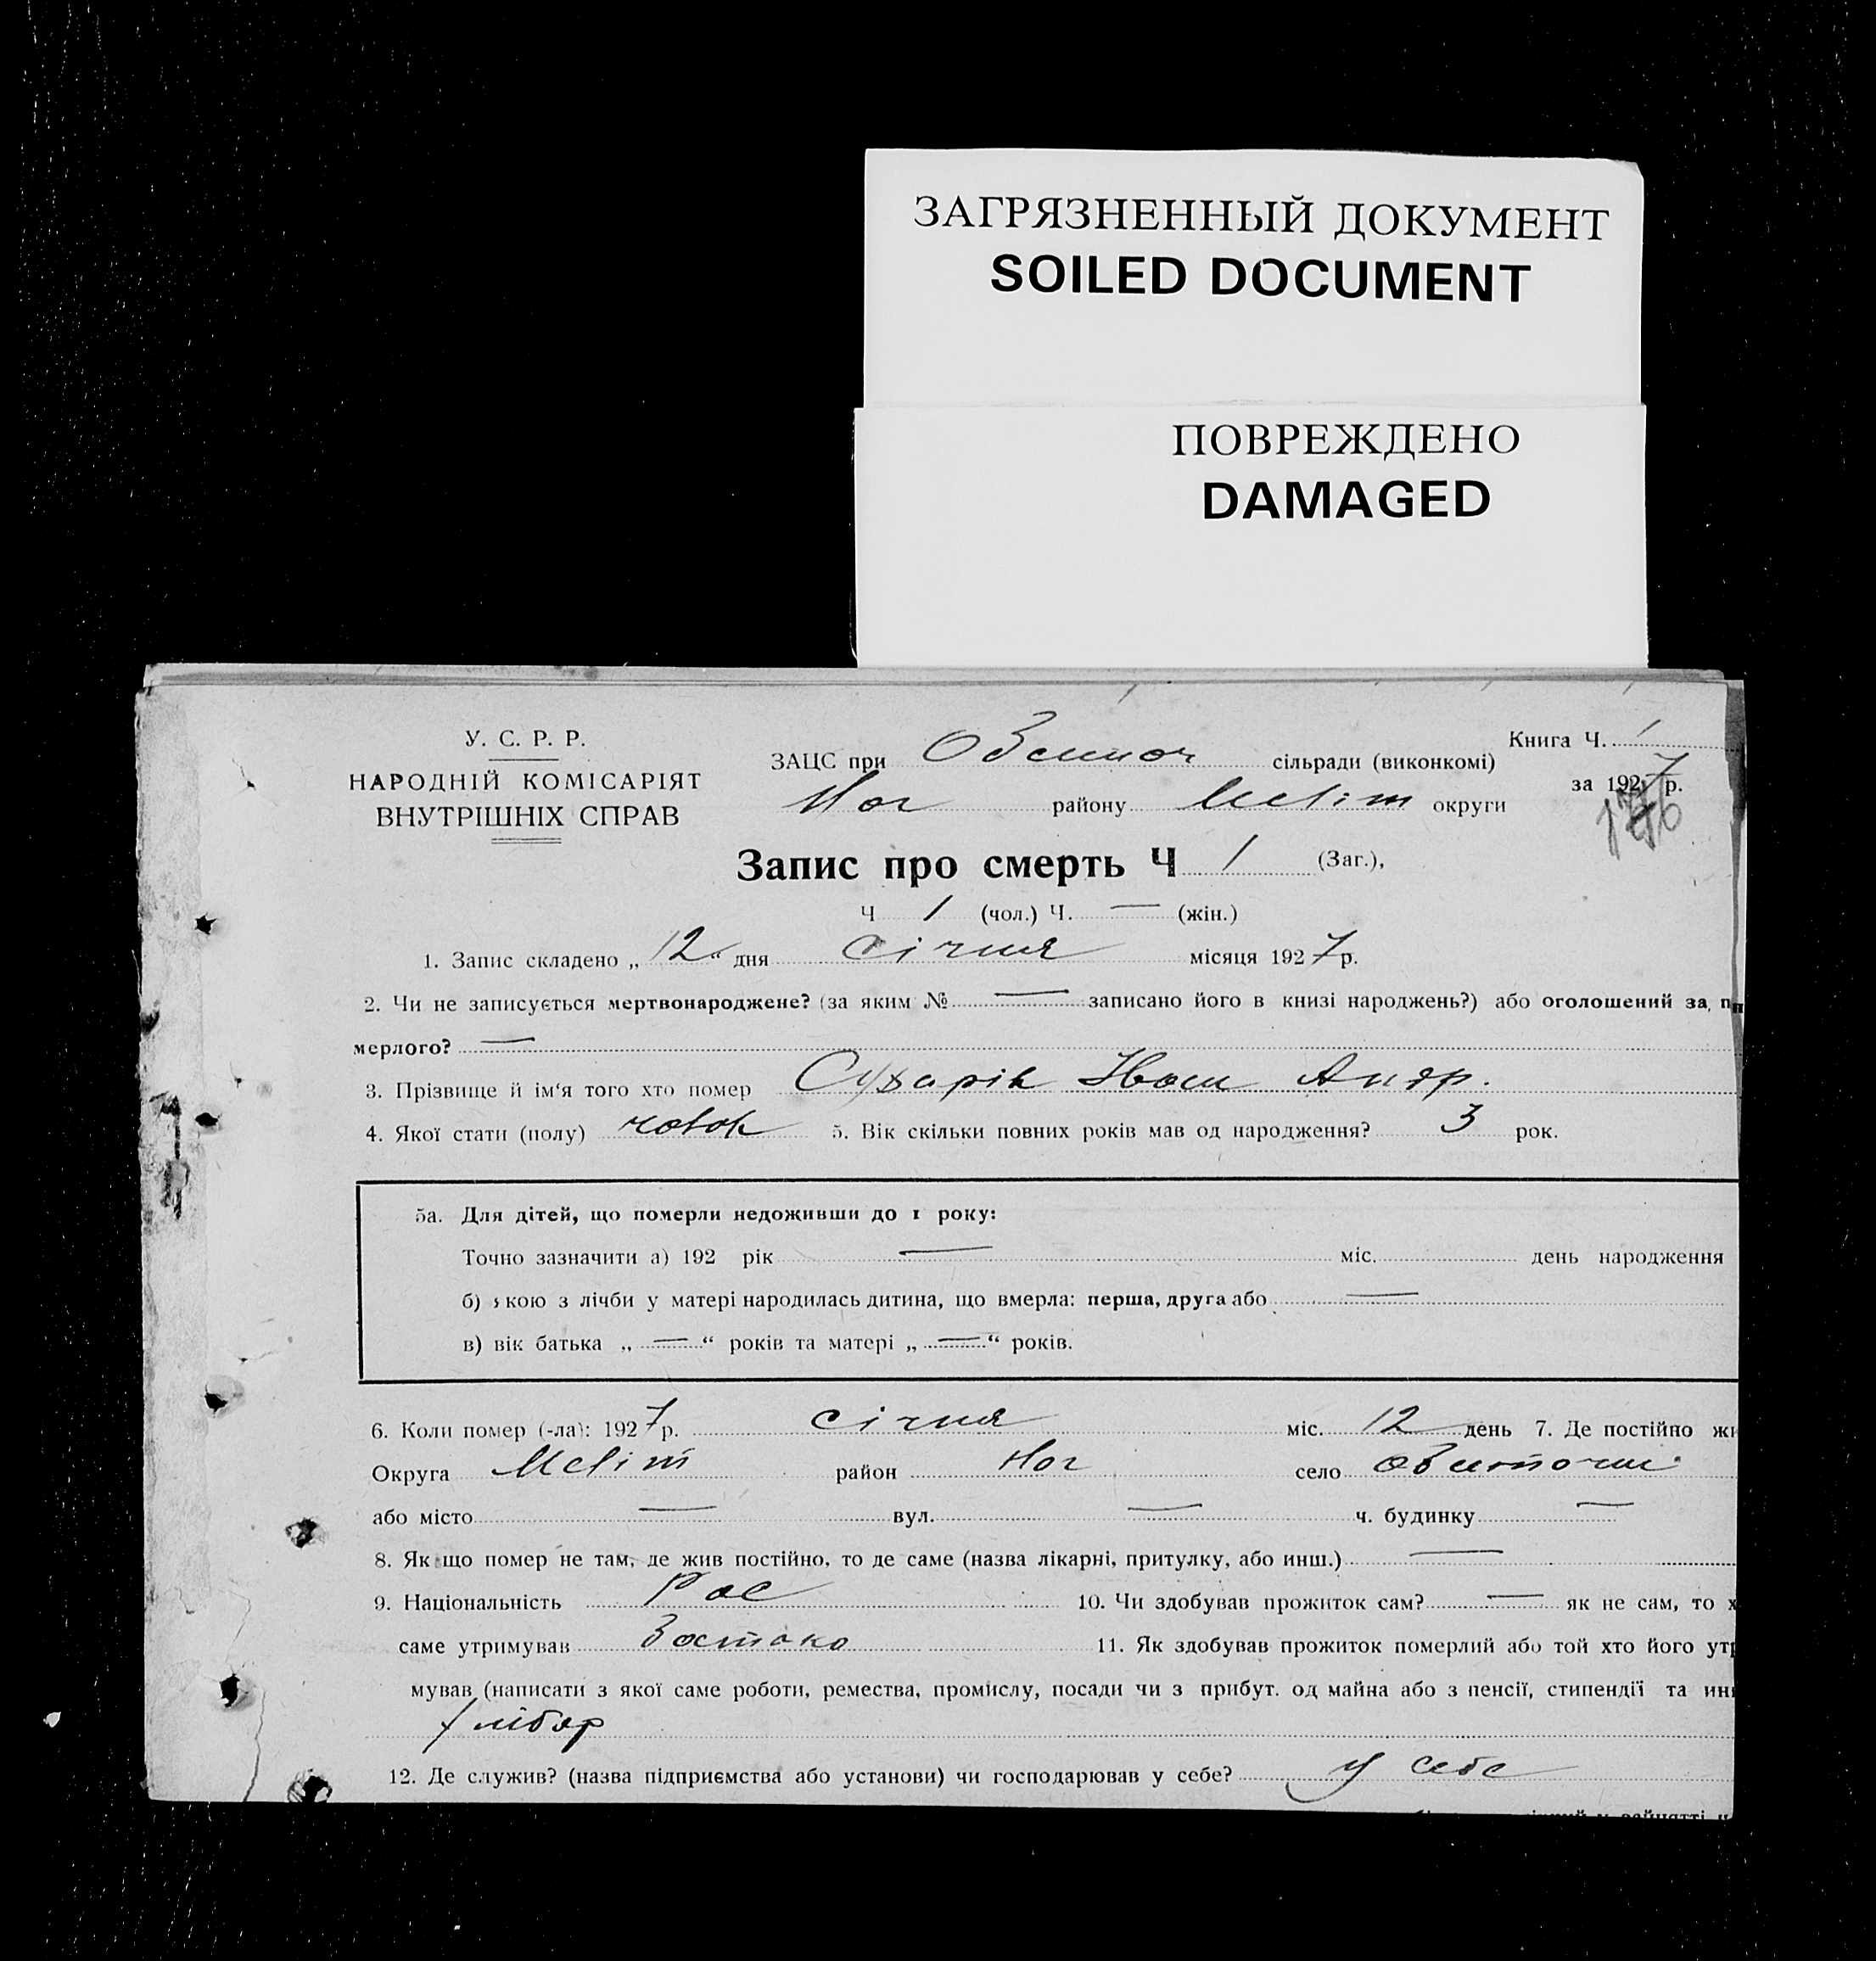 ЗАГРЯЗНЕННЫЙ ДОКУМЕНТ
SOILED DOCUMENT
ПОВРЕЖДЕНО
DAMAGED
У. С. Р. Р.
НАРОДНІЙ КОМІСАРІЯТ
ВНУТРІШНІХ СПРАВ
Книга Ч. 1
за 1927 р.
ЗАЦС при сільради (виконкомі)
Ног району Меліт округи
Запис про смерть Ч 1 (Заг.),
Ч 1 (чол.) Ч. — (жін.)
1. Запис складено „12“ дня січня місяця 1927 р.
2. Чи не записується мертвонароджене? (за яким № — записано його в книзі народжень?) або оголошений за
мерлого? —
3. Прізвище й ім‘я того хто помер Сухарів Іван Андр.
4. Якої стати (полу) чолов 5. Вік скільки повних років мав од народження? 3 рок.
5а. Для дітей, що померли недоживши до 1 року:
Точно зазначити а) 192 рік — міс. день народження
б) якою з лічби у матері народилась дитина, що вмерла: перша, друга або —
в) вік батька „—“ років та матері „—“ років.
6. Коли помер (-ла): 1927 р. січня міс. 12 день 7. Де постійно жи
Округа Меліт район Ног село
або місто — вул. — ч. будинку —
8. Як що помер не там, де жив постійно, то де саме (назва лікарні, притулку, або инш.) —
9. Національність Рос 10. Чи здобував прожиток сам? — як не сам, то х
саме утримував 11. Як здобував прожиток померлий або той хто його утр
мував (написати з якої саме роботи, ремества, промислу, посади чи з прибут. од майна або з пенсії, стипендії та ин
хлібор
12. Де служив? (назва підприємства або установи) чи господарював у себе? у себе